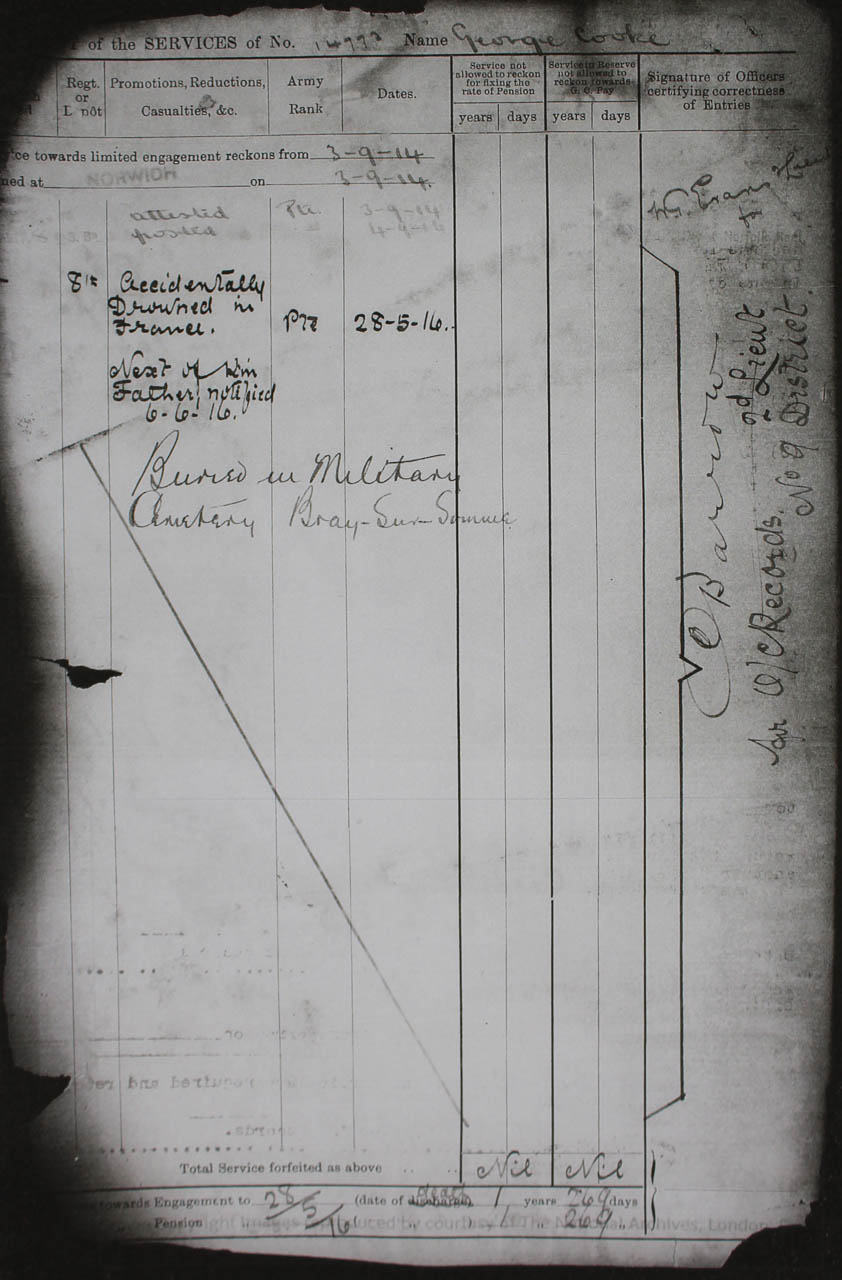 of the SERVICES of No. Name George Cooke
Regt. or
Promotions, Reductions, Casualties, &c.
Army Rank
Dates.
Service not allowed to reckon for fixing the rate of Pension
Service in Reserve not allowed to reckon towards G. C. Pay
Signature of Officers certifying correctness of Entries
years days years days
towards limited engagement reckons from 3-9-14
at NORWICH on 3-9-14.
attested Pte. 3-9-14
posted 4-9-14
8th Accidentally
Drowned in
France. Pte 28-5-16.
Next of kin
Father notified
6-6-16.
Buried in Military
Cemetery Bray-Sur-Somme
C Barrow
2d Lieut
for O/C Records.
No 9 District.
Total Service forfeited as above Nil Nil
towards Engagement to 28/5/16 (date of discharge death 1 years 269 days
Pension 1 269
Images reproduced by courtesy of The National Archives, London